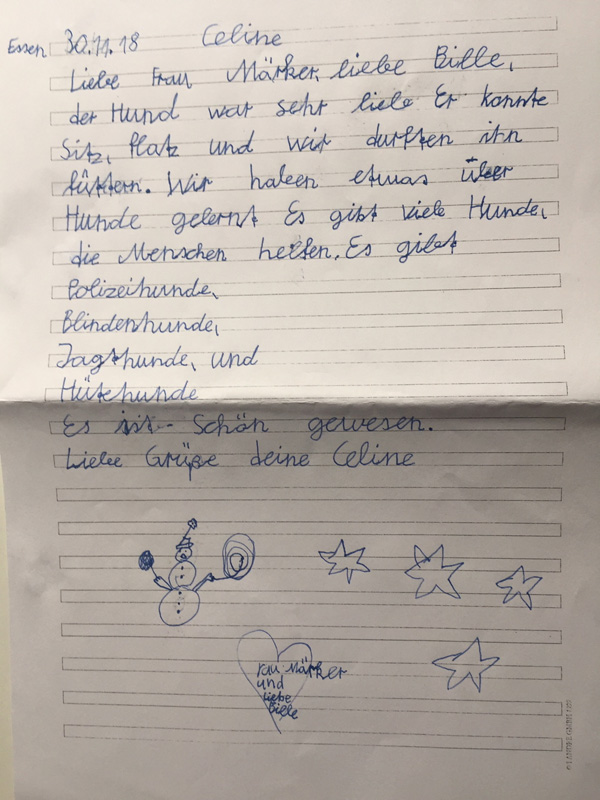 Essen 30.11.18 Celine
Liebe Frau Märker, liebe Bille,
der Hund war sehr liebe Er konnte
Sitz, Platz und wir durften ihn
füttern. Wir haben etwas über
Hunde gelernt Es gibt viele Hunde,
die Menschen helfen. Es gibt
Polizeihunde,
Blindenhunde,
Jagthunde, und
Hütehunde
Es ist Schön gewesen.
Liebe Grüße deine Celine
rau Märker
und
liebe
Bille